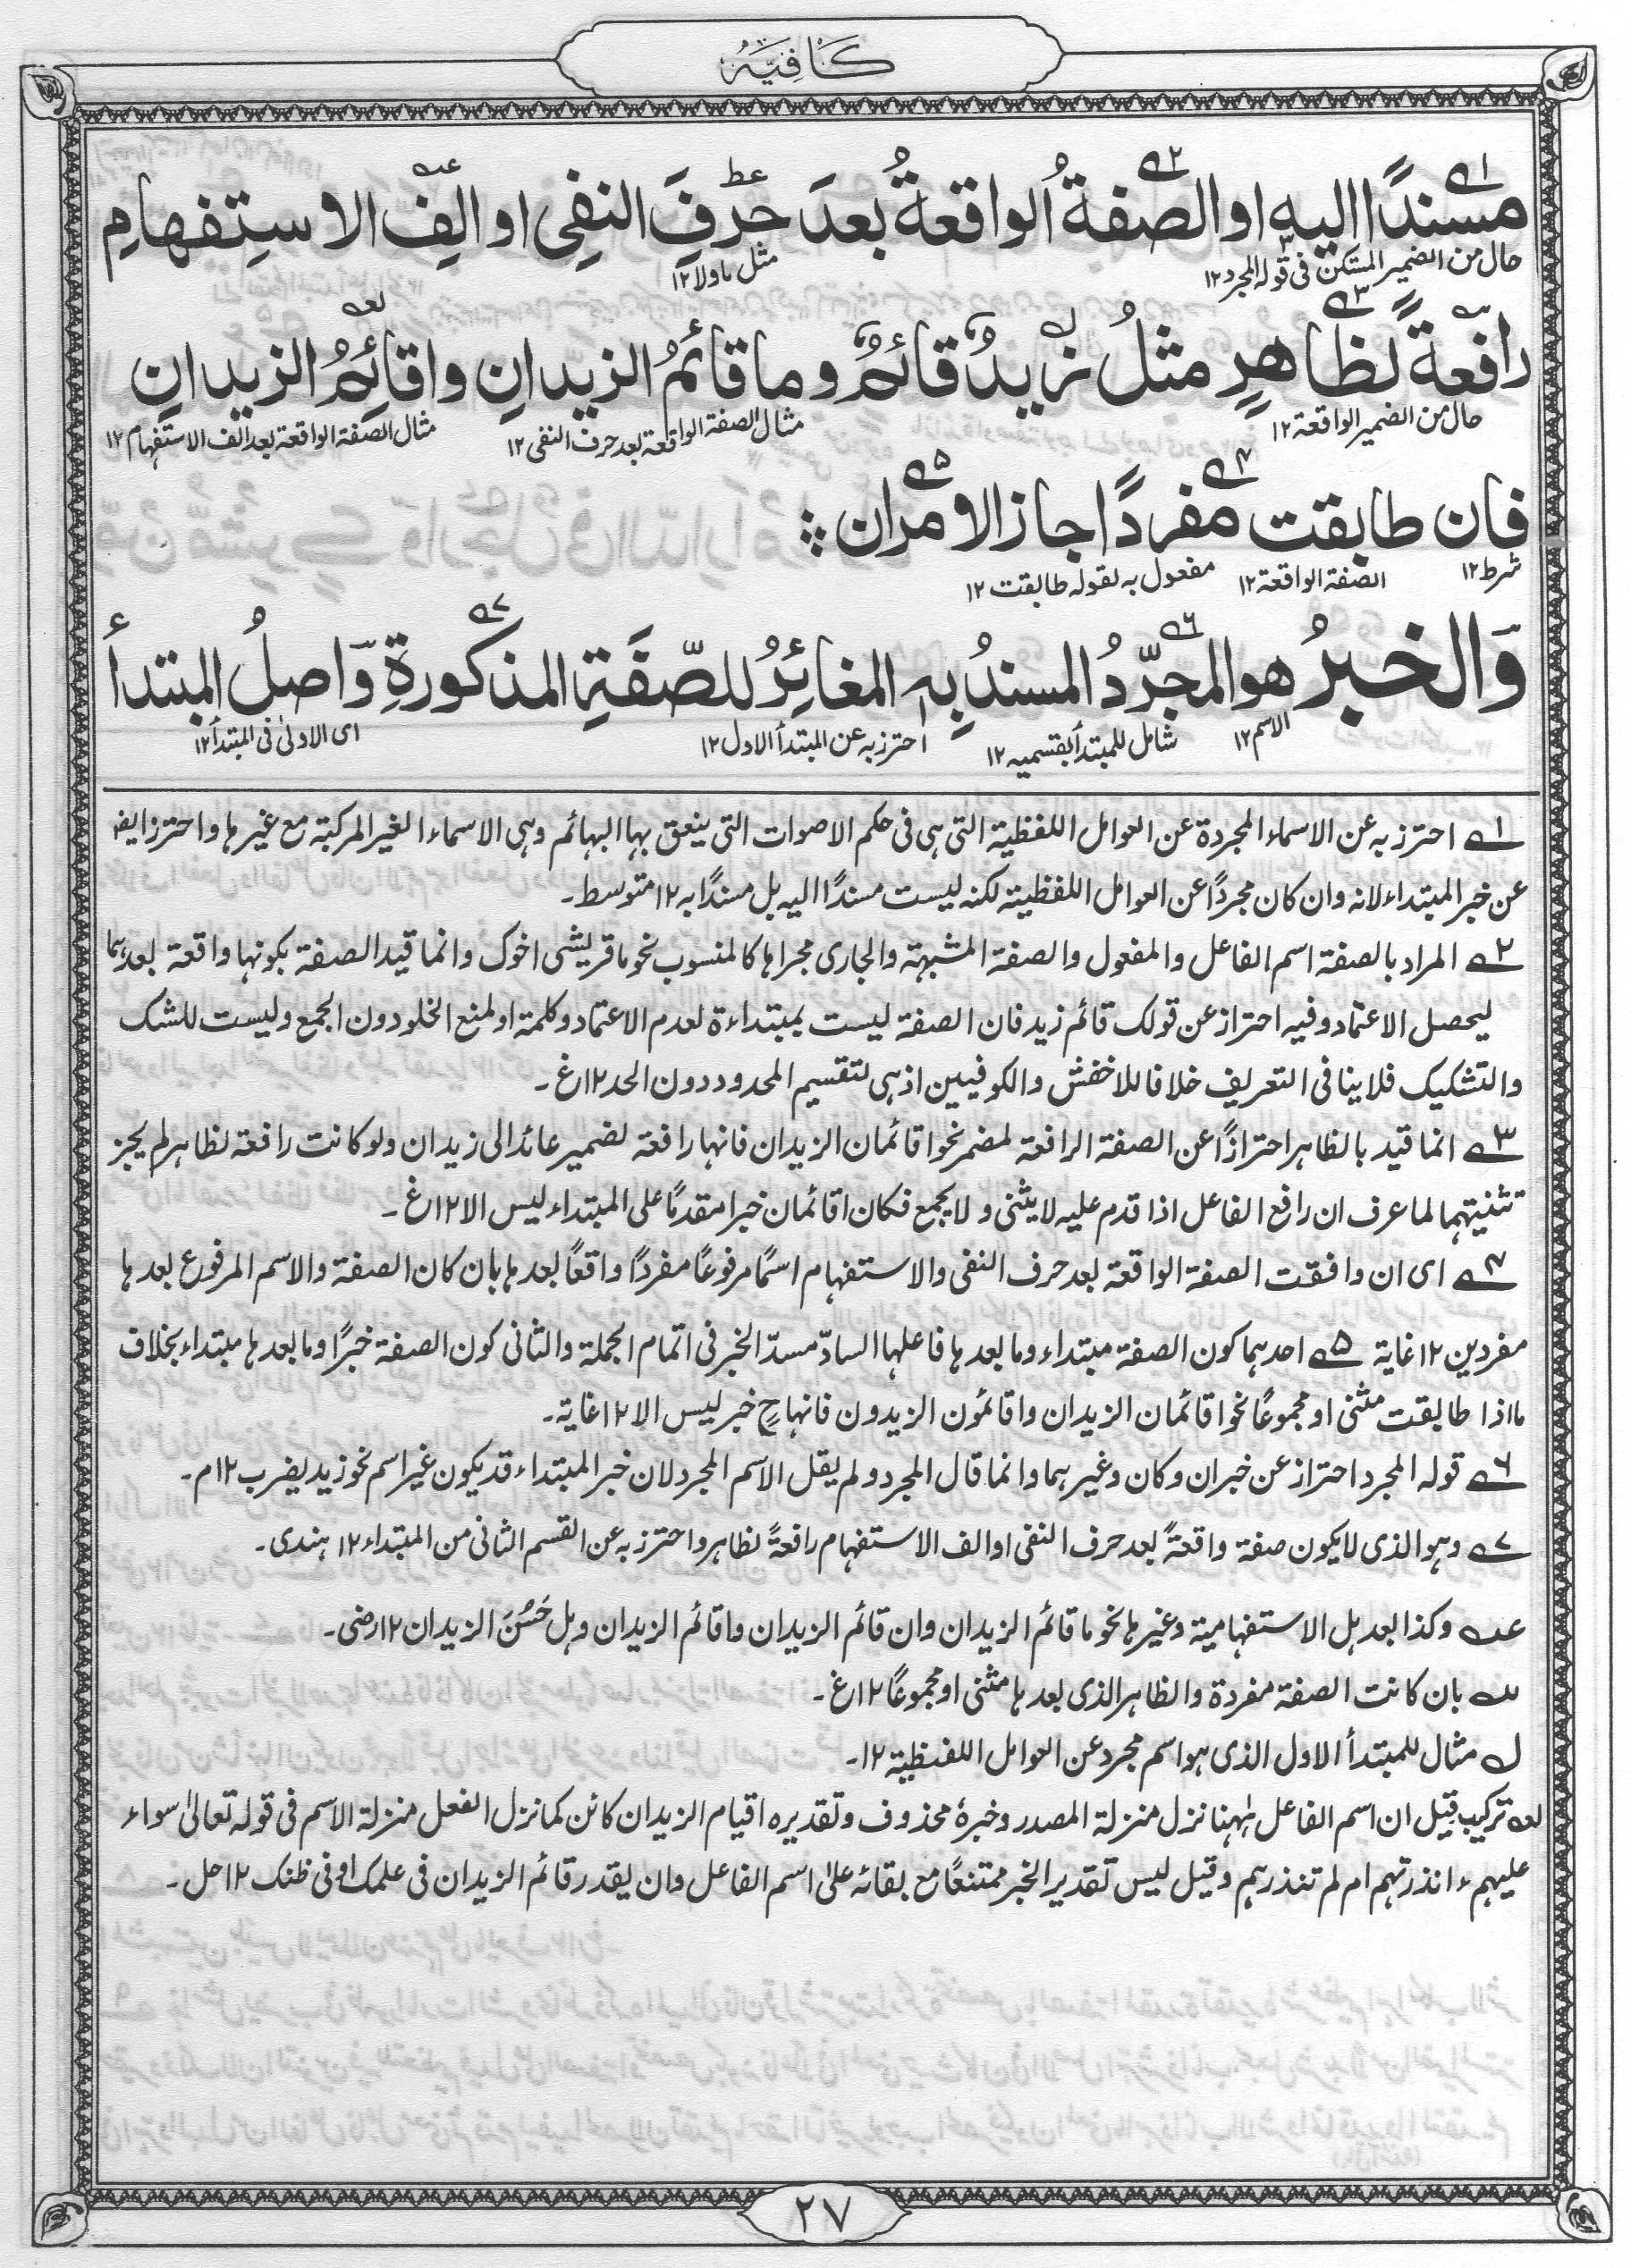 كَافِيَه
مسندًا اليه او الصفةُ الواقعةُ بعدَ حرفِ النفي او الفِ الاستفهامِ
حال من الضمير المستكن في قوله المجرد ١٢ مثل ما ولا ١٢
رافعةً لظاهرٍ مثلُ زيدٌ قائمٌ وما قائمُ الزيدانِ واقائمُ الزيدانِ
حال من الضمير الواقعة ١٢ مثال الصفة الواقعة بعد حرف النفي ١٢ مثال الصفة الواقعة بعد الف الاستفهام ١٢
فان طابقت مفردًا جاز الامران
شرط ١٢ الصفة الواقعة ١٢ مفعول به لقوله طابقت ١٢
وَالخبرُ هو المجرّدُ المسندُ بِه المغائِرُ للصّفَةِ المذكورةِ وَاصلُ المبتدأ
الاسم ١٢ شامل للمبتدأ بقسميه ١٢ احترز به عن المبتدأ الاول ١٢ اى الاولىٰ فى المبتدأ ١٢
١ احترز به عن الاسماء المجردة عن العوامل اللفظية التى هى فى حكم الاصوات التى ينعق بها البهائم وهى الاسماء الغير المركبة مع غيرها واحترز ايضا
عن خبر المبتداء لانه وان كان مجردًا عن العوامل اللفظية لكنه ليست مسندًا اليه بل مسندًا به ١٢ متوسط۔
٢ المراد بالصفة اسم الفاعل والمفعول والصفة المشبهة والجارى مجراها كالمنسوب نحو ما قريشى اخوك وانما قيد الصفة بكونها واقعة بعدهما
ليحصل الاعتماد وفيه احتراز عن قولك قائم زيد فان الصفة ليست بمبتداءة لعدم الاعتماد وكلمة او لمنع الخلو دون الجمع وليست للشك
والتشكيك فلا ينافى التعريف خلافا للاخفش والكوفيين اذ هى لتقسيم المحدود دون الحد ١٢ غ۔
٣ انما قيد بالظاهر احترازًا عن الصفة الرافعة لمضمر نحو اقائمان الزيدان فانها رافعة لضمير عائد الى زيدان ولو كانت رافعة لظاهر لم يجز
تثنيتهما لما عرف ان رافع الفاعل اذا قدم عليه لا يثنى و لا يجمع فكان اقائمان خبرا مقدمًا على المبتداء ليس الا ١٢ غ۔
٤ اى ان وافقت الصفة الواقعة بعد حرف النفى والاستفهام اسمًا مرفوعًا مفردًا واقعًا بعدها بان كان الصفة والاسم المرفوع بعدها
مفردين ١٢ غاية ٥ احدهما كون الصفة مبتداء وما بعدها فاعلها السادّ مسدّ الخبر فى اتمام الجملة والثانى كون الصفة خبرًا وما بعدها مبتداء بخلاف
ما اذا طابقت مثنى او مجموعًا نحو اقائمان الزيدان واقائمون الزيدون فانها ح خبر ليس الا ١٢ غاية۔
٦ قوله المجرد احتراز عن خبر ان وكان وغيرهما وانما قال المجرد ولم يقل الاسم المجرد لان خبر المبتداء قد يكون غير اسم نحو زيد يضرب ١٢ م۔
٧ وهو الذى لا يكون صفة واقعةً بعد حرف النفى او الف الاستفهام رافعةً لظاهر واحترز به عن القسم الثانى من المبتداء ١٢ هندى۔
عه وكذا بعد هل الاستفهامية وغيرها نحو ما قائم الزيدان وان قائم الزيدان واقائم الزيدان وهل حَسَنَ الزيدان ١٢ رضى۔
بان كانت الصفة مفردة والظاهر الذى بعدها مثنى او مجموعًا ١٢ غ۔
ل مثال للمبتدأ الاول الذى هو اسم مجرد عن العوامل اللفظية ١٢۔
لعه تركيب قيل ان اسم الفاعل ههنا نزل منزلة المصدر وخبرهٗ محذوف وتقديره اقيام الزيدان كائن كما نزل الفعل منزلة الاسم فى قوله تعالىٰ سواء
عليهم ء انذرتهم ام لم تنذرهم وقيل ليس تقدير الخبر ممتنعًا مع بقائه علىٰ اسم الفاعل وان يقدر قائم الزيدان فى علمك او فى ظنك ١٢ حل۔
٢٧